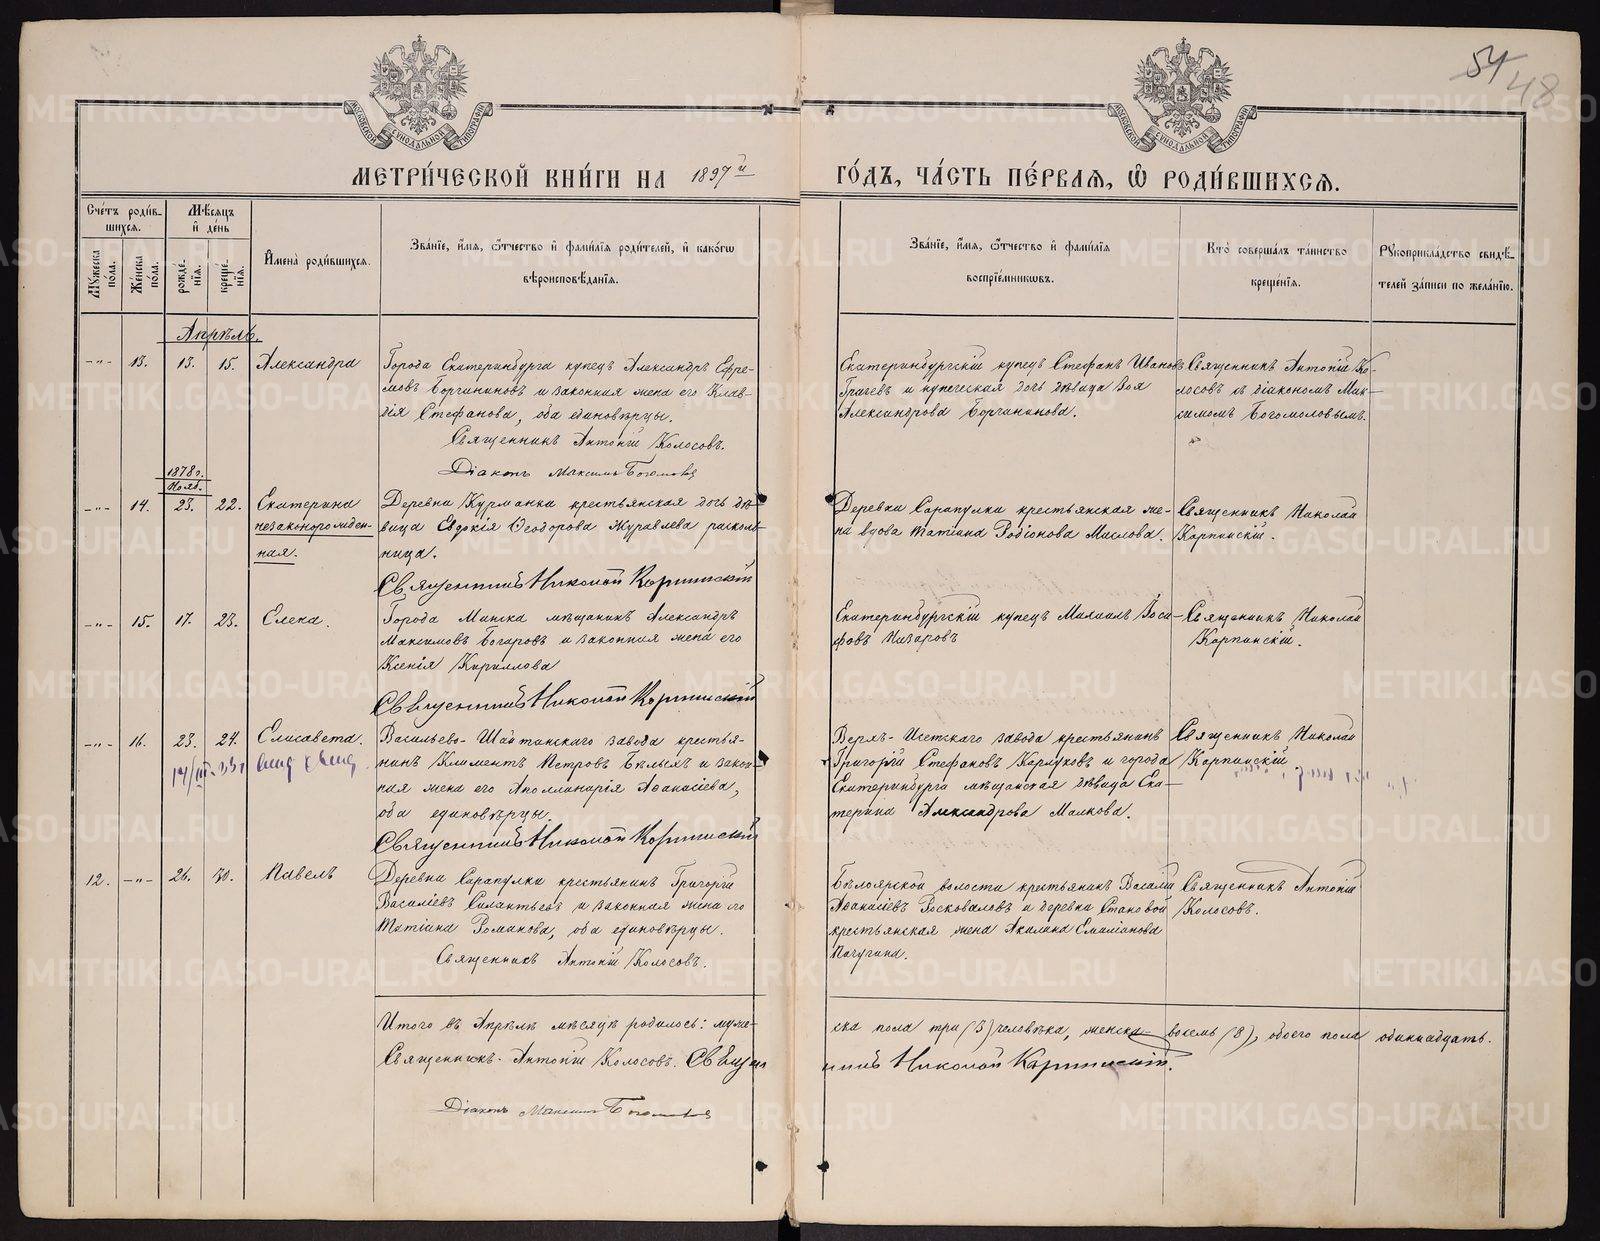 54 48
МОСКОВСКОЙ СѴНОДАЛЬНОЙ ТИПОГРАФІИ
МОСКОВСКОЙ СѴНОДАЛЬНОЙ ТИПОГРАФІИ
МЕТРИ́ЧЕСКОЙ КНИ́ГИ НА 1897й ГО́ДЪ, ЧА́СТЬ ПЕ́РВАЯ, Ѡ РОДИ́ВШИХСЯ.
Сче́тъ роди́в-
шихся.
Мужеска по́ла.
Же́нска по́ла.
Мѣ́сяцъ
и҆ де́нь
рожде́-
нїя.
креще́-
нїя.
И҆мена̀ роди́вшихся.
Зва́нїе, и҆́мя, ѻ҆́тчество и҆ фами́лїя роди́телей, и҆ како́гѡ
вѣроисповѣ́данїя.
Зва́нїе, и҆́мя, ѻ҆́тчество и҆ фами́лїя
воспрїе́мникѡвъ.
Кто̀ соверша́лъ та́инство
креще́нїя.
Рукоприкла́дство свидѣ́-
телей за́писи по жела́нїю.
Апрѣль.
-"- 13. 13. 15. Александра
Города Екатеринбурга купецъ Александръ Ефре-
мовъ Борчаниновъ и законная жена его Клав-
дія Стефанова, оба единовѣрцы.
Священникъ Антоній Колосовъ.
Діаконъ Максимъ Богомоловъ
Екатеринбургскій купецъ Стефанъ Ивановъ
Грачевъ и купеческая дочь дѣвица Зоя
Александрова Борчанинова.
Священникъ Антоній Ко-
лосовъ съ діакономъ Мак-
симомъ Богомоловымъ.
1878 г.
Нояб.
-"- 14. 23. 22. Екатерина
незаконорожден-
ная.
Деревни Курманки крестьянская дочь дѣ-
вица Евдокія Ѳеодорова Журавлева расколь-
ница.
Священникъ Николай Карпинскій
Деревни Сарапулки крестьянская же-
на вдова Матіана Родіонова Маслова.
Священникъ Николай
Карпинскій.
-"- 15. 17. 23. Елена.
Города Минска мѣщанинъ Александръ
Максимовъ Богаровъ и законная жена его
Ксенія Кириллова
Священникъ Николай Карпинскій
Екатеринбургскій купецъ Михаилъ Іоси-
фовъ Назаровъ
Священникъ Николай
Карпинскій.
-"- 16. 23. 24. Елисавета.
14/III-33 г.
Васильево-Шайтанскаго завода крестья-
нинъ Климентъ Петровъ Бѣлыхъ и закон-
ная жена его Аполлинарія Аѳанасіева,
оба единовѣрцы.
Священникъ Николай Карпинскій
Верхъ-Исетскаго завода крестьянинъ
Григорій Стефановъ Карлуковъ и города
Екатеринбурга мѣщанская дѣвица Ека-
терина Александрова Малкова.
Священникъ Николай
Карпинскій.
12. -"- 26. 30. Павелъ
Деревни Сарапулки крестьянинъ Григорій
Василіевъ Силантьевъ и законная жена его
Татіана Романова, оба единовѣрцы.
Священникъ Антоній Колосовъ.
Бѣлоярской волости крестьянинъ Василій
Аѳанасіевъ Росковаловъ и деревни Становой
крестьянская жена Акилина Емиліанова
Пичугина.
Священникъ Антоній
Колосовъ.
Итого въ Апрѣлѣ мѣсяцѣ родилось: муже-
ска пола три (3) человѣка, женска- восемь (8), обоего пола одиннадцать.
Священникъ Антоній Колосовъ. Священ-
никъ Николай Карпинскій.
Діаконъ Максимъ Богомоловъ
METRIKI.GASO-URAL.RU